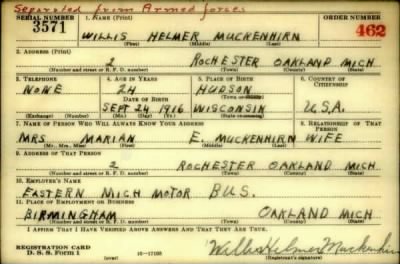 Separated from Armed forces
SERIAL NUMBER 1. NAME (Print) ORDER NUMBER
3571 WILLIS HELMER MUCKENHIRN 462
(First) (Middle) (Last)
2. ADDRESS (Print)
2 ROCHESTER OAKLAND MICH
(Number and street or R. F. D. number) (Town) (County) (State)
3. TELEPHONE 4. AGE IN YEARS 5. PLACE OF BIRTH 6. COUNTRY OF CITIZENSHIP
NONE 24 HUDSON
DATE OF BIRTH (Town or county)
SEPT 24 1916 WISCONSIN U.S.A.
(Exchange) (Number) (Mo.) (Day) (Yr.) (State or country)
7. NAME OF PERSON WHO WILL ALWAYS KNOW YOUR ADDRESS 8. RELATIONSHIP OF THAT PERSON
MRS MARIAN E. MUCKENHIRN WIFE
(Mr., Mrs., Miss) (First) (Middle) (Last)
9. ADDRESS OF THAT PERSON
2 ROCHESTER OAKLAND MICH
(Number and street or R. F. D. number) (Town) (County) (State)
10. EMPLOYER'S NAME
EASTERN MICH MOTOR BUS.
11. PLACE OF EMPLOYMENT OR BUSINESS
BIRMINGHAM OAKLAND MICH
(Number and street or R. F. D. number) (Town) (County) (State)
I AFFIRM THAT I HAVE VERIFIED ABOVE ANSWERS AND THAT THEY ARE TRUE.
REGISTRATION CARD
D. S. S. Form 1 (over) Willis Helmer Muckenhirn
(Registrant's signature)